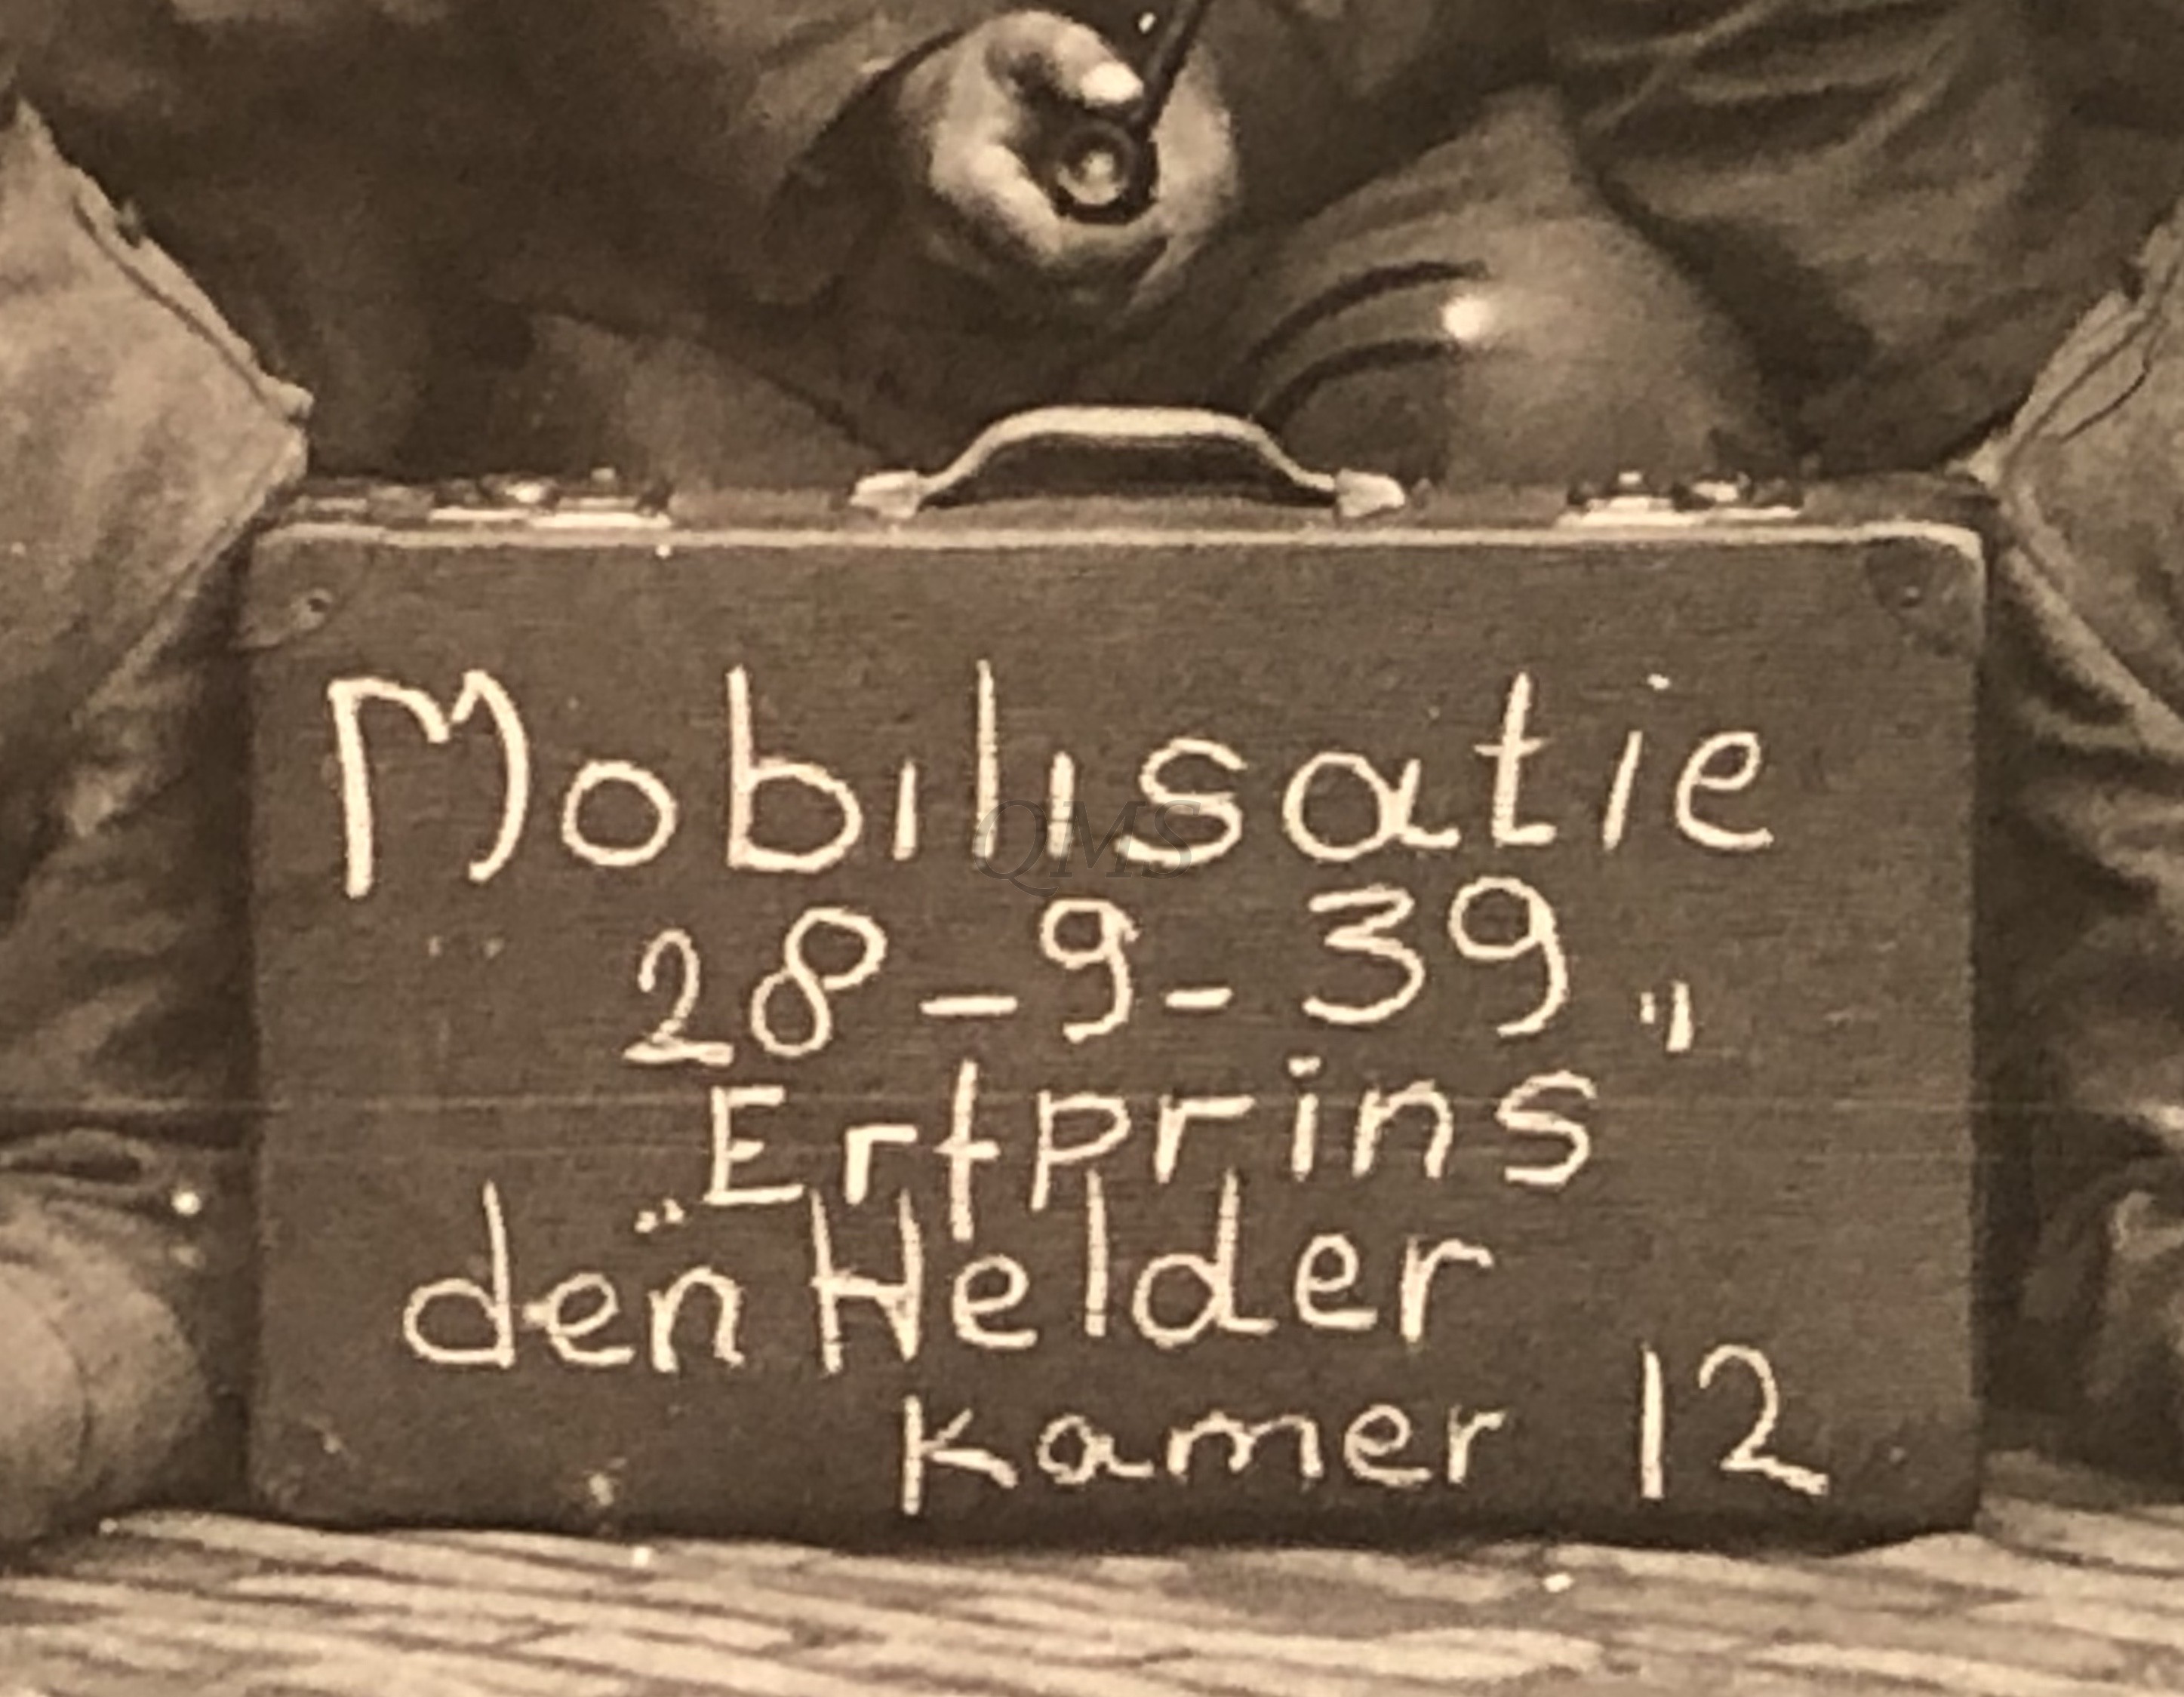 Mobilisatie
28-9-39
„Erfprins"
den Helder
kamer 12
QMS